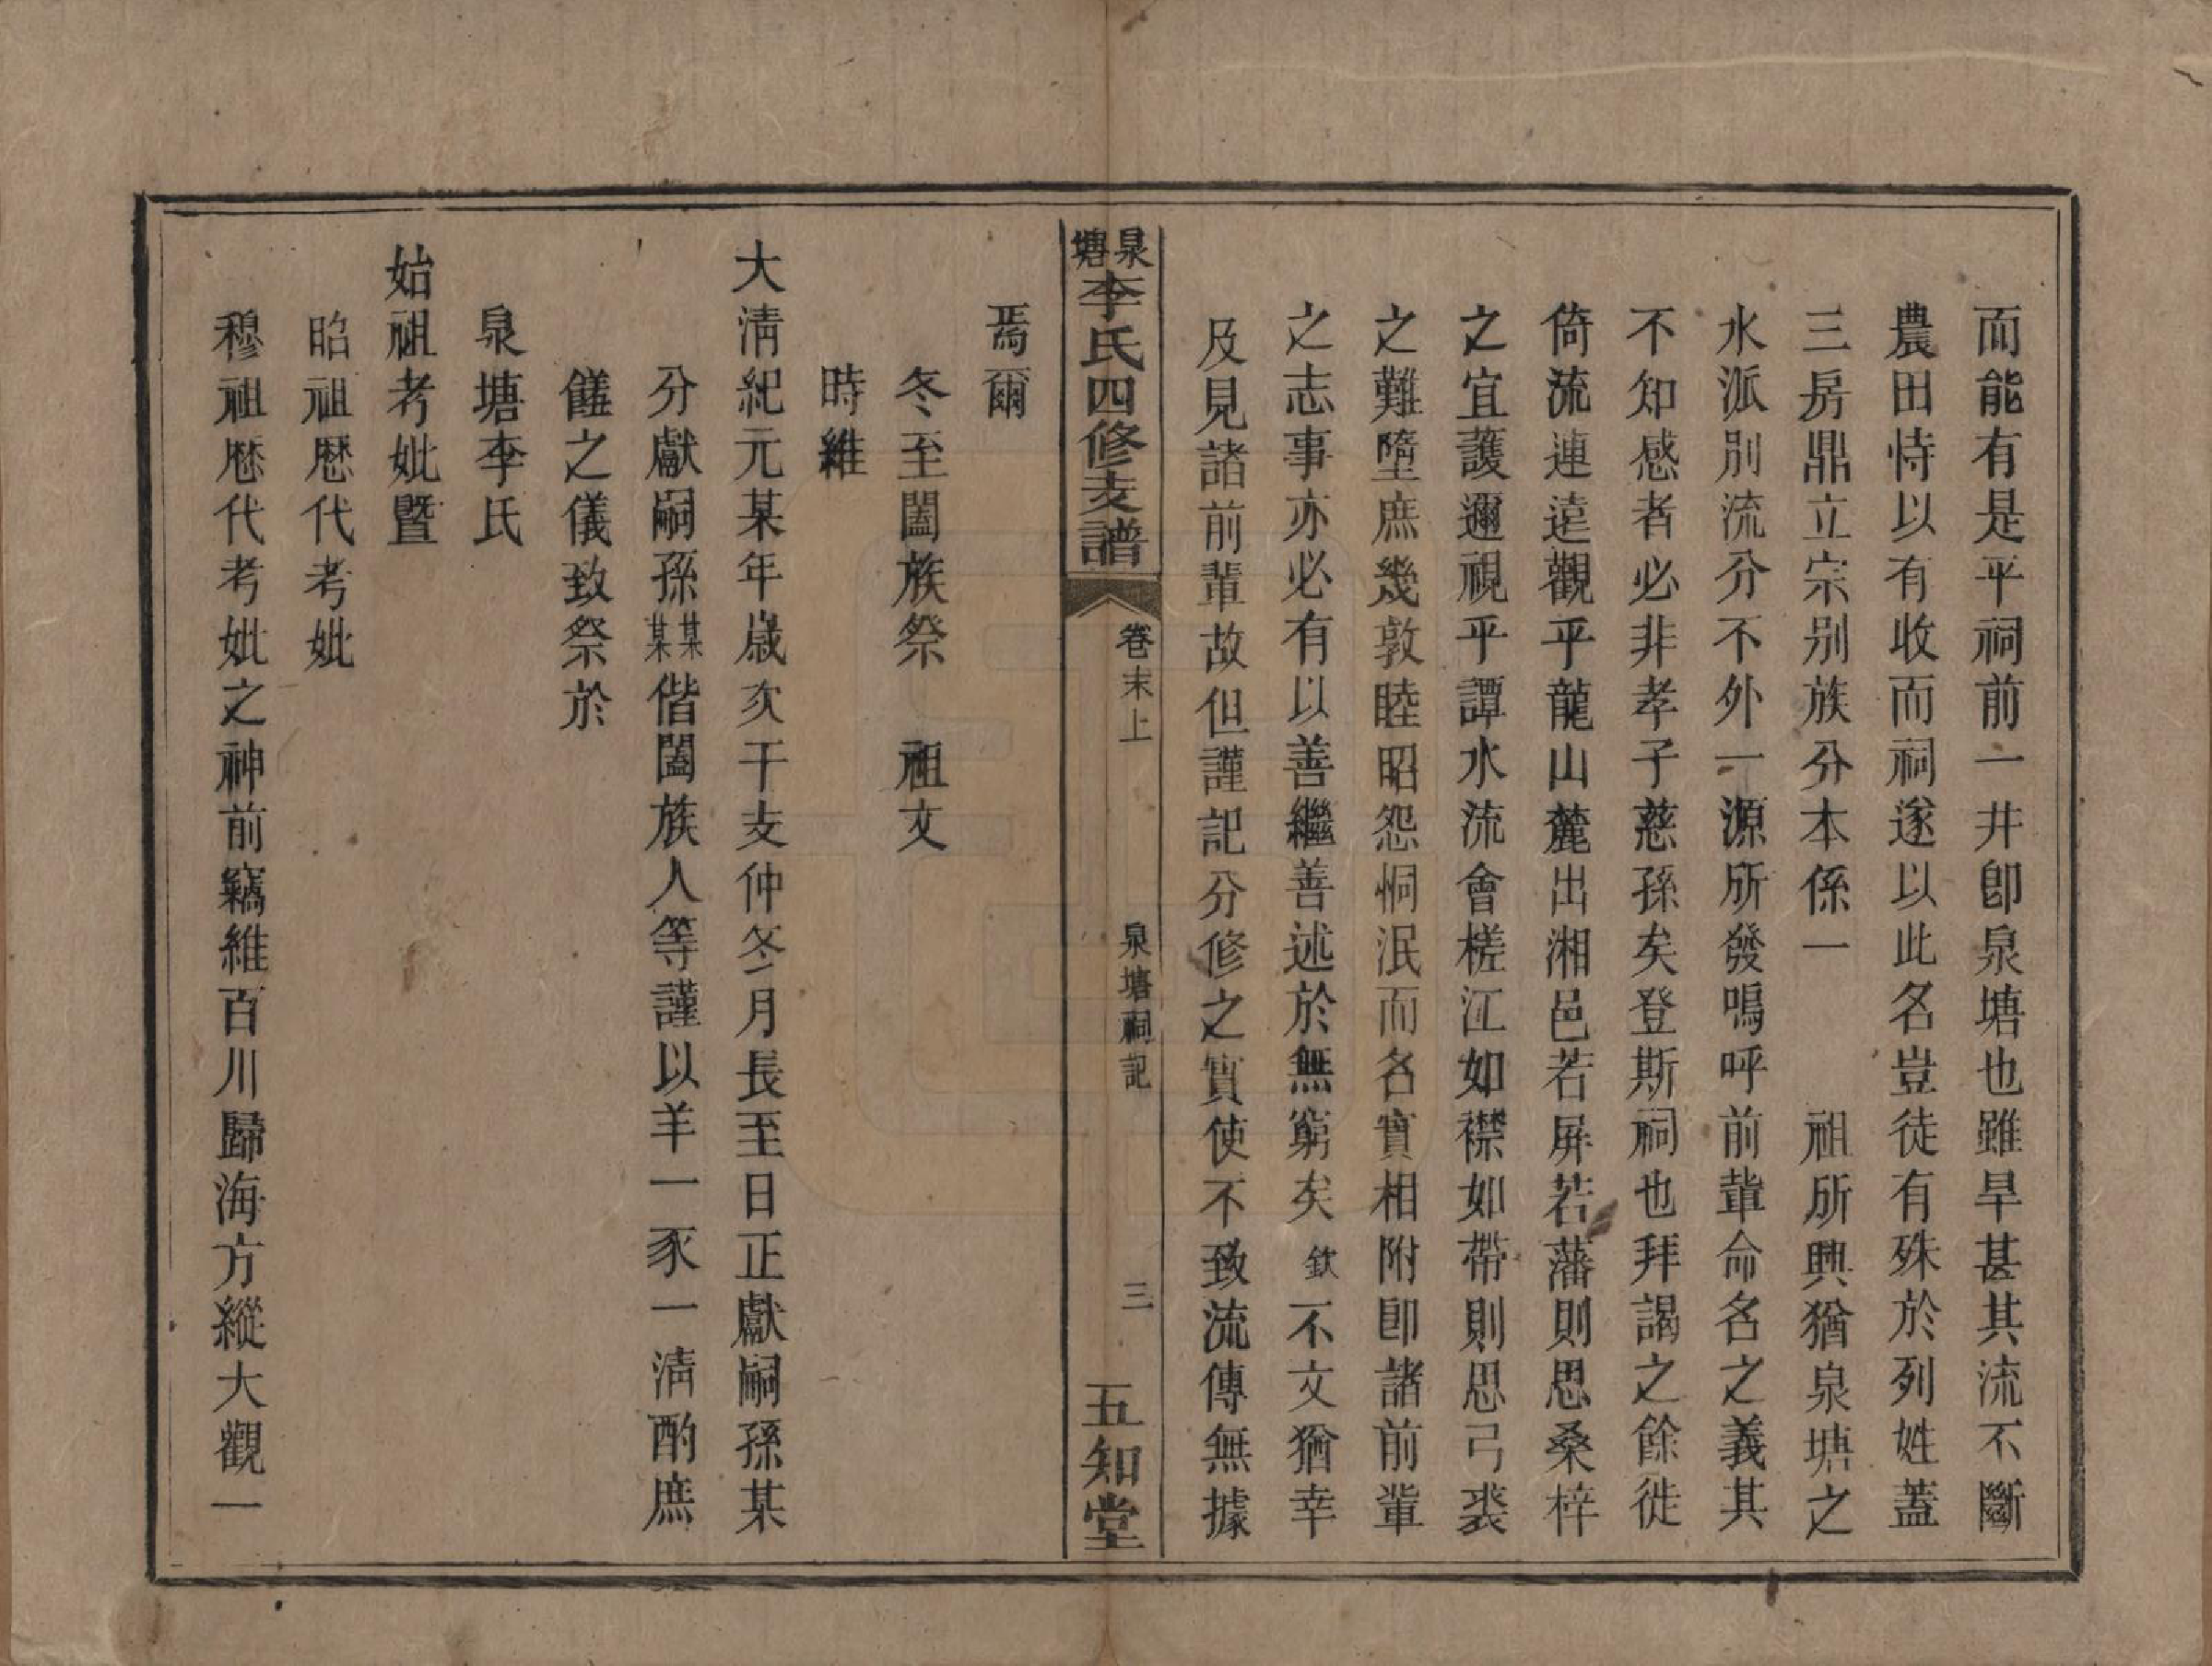 而能有是平祠前一井卽泉塘也雖旱甚其流不斷
農田恃以有收而祠遂以此名豈徒有殊於列姓蓋
三房鼎立宗别族分本係一　祖所興猶泉塘之
水派別流分不外一源所發嗚呼前輩命名之義其
不知感者必非孝子慈孫矣登斯祠也拜謁之餘徙
倚流連遠觀乎龍山麓出湘邑若屏若藩則思桑梓
之宜護邇視平譚水流會槎江如襟如帶則思弓裘
之難墮庶幾敦睦昭怨恫泯而名實相附卽諸前輩
之志事亦必有以善繼善述於無窮矣欽不文猶幸
及見諸前輩故但謹記分修之實使不致流傳無據
焉爾
泉塘李氏四修支譜　卷末上　泉塘祠記　三　五知堂
冬至闔族祭　祖文
時維
大淸紀元某年歲次干支仲冬月長至日正獻嗣孫某
分獻嗣孫某某偕闔族人等謹以羊一豕一淸酌庶
饈之儀致祭於
泉塘李氏
始祖考妣暨
昭祖歷代考妣
穆祖歷代考妣之神前竊維百川歸海方縱大觀一